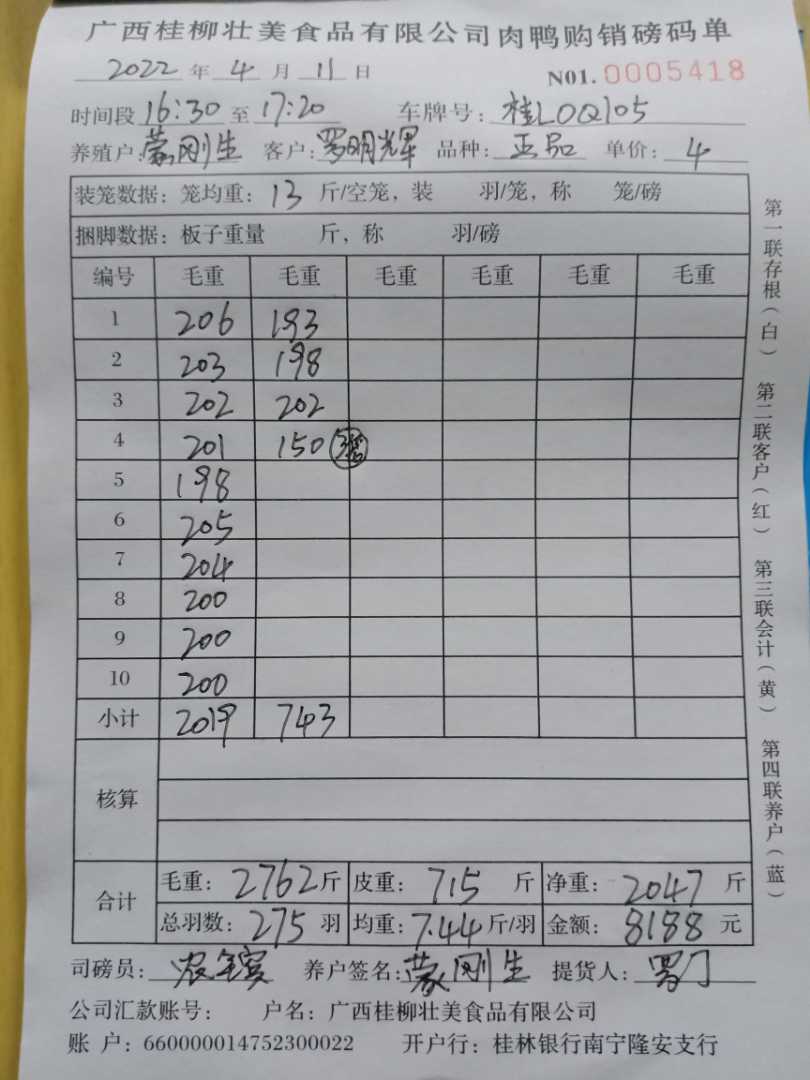 广西桂柳壮美食品有限公司肉鸭购销磅码单
2022 年 4 月 11 日 N01. 0005418
时间段 16:30 至 17:20 车牌号: 桂L0Q105
养殖户: 蒙刚生 客户: 罗明辉 品种: 正品 单价: 4
装笼数据: 笼均重: 13 斤/空笼, 装 羽/笼, 称 笼/磅
捆脚数据: 板子重量 斤, 称 羽/磅
编号 毛重 毛重 毛重 毛重 毛重 毛重
1 206 193
2 203 198
3 202 202
4 201 150
5 198
6 205
7 204
8 200
9 200
10 200
小计 2019 743
核算
合计 毛重: 2762 斤 皮重: 715 斤 净重: 2047 斤
总羽数: 275 羽 均重: 7.44 斤/羽 金额: 8188 元
司磅员: 养户签名: 蒙刚生 提货人:
公司汇款账号: 户名: 广西桂柳壮美食品有限公司
账 户: 660000014752300022 开户行: 桂林银行南宁隆安支行
第一联存根(白) 第二联客户(红) 第三联会计(黄) 第四联养户(蓝)